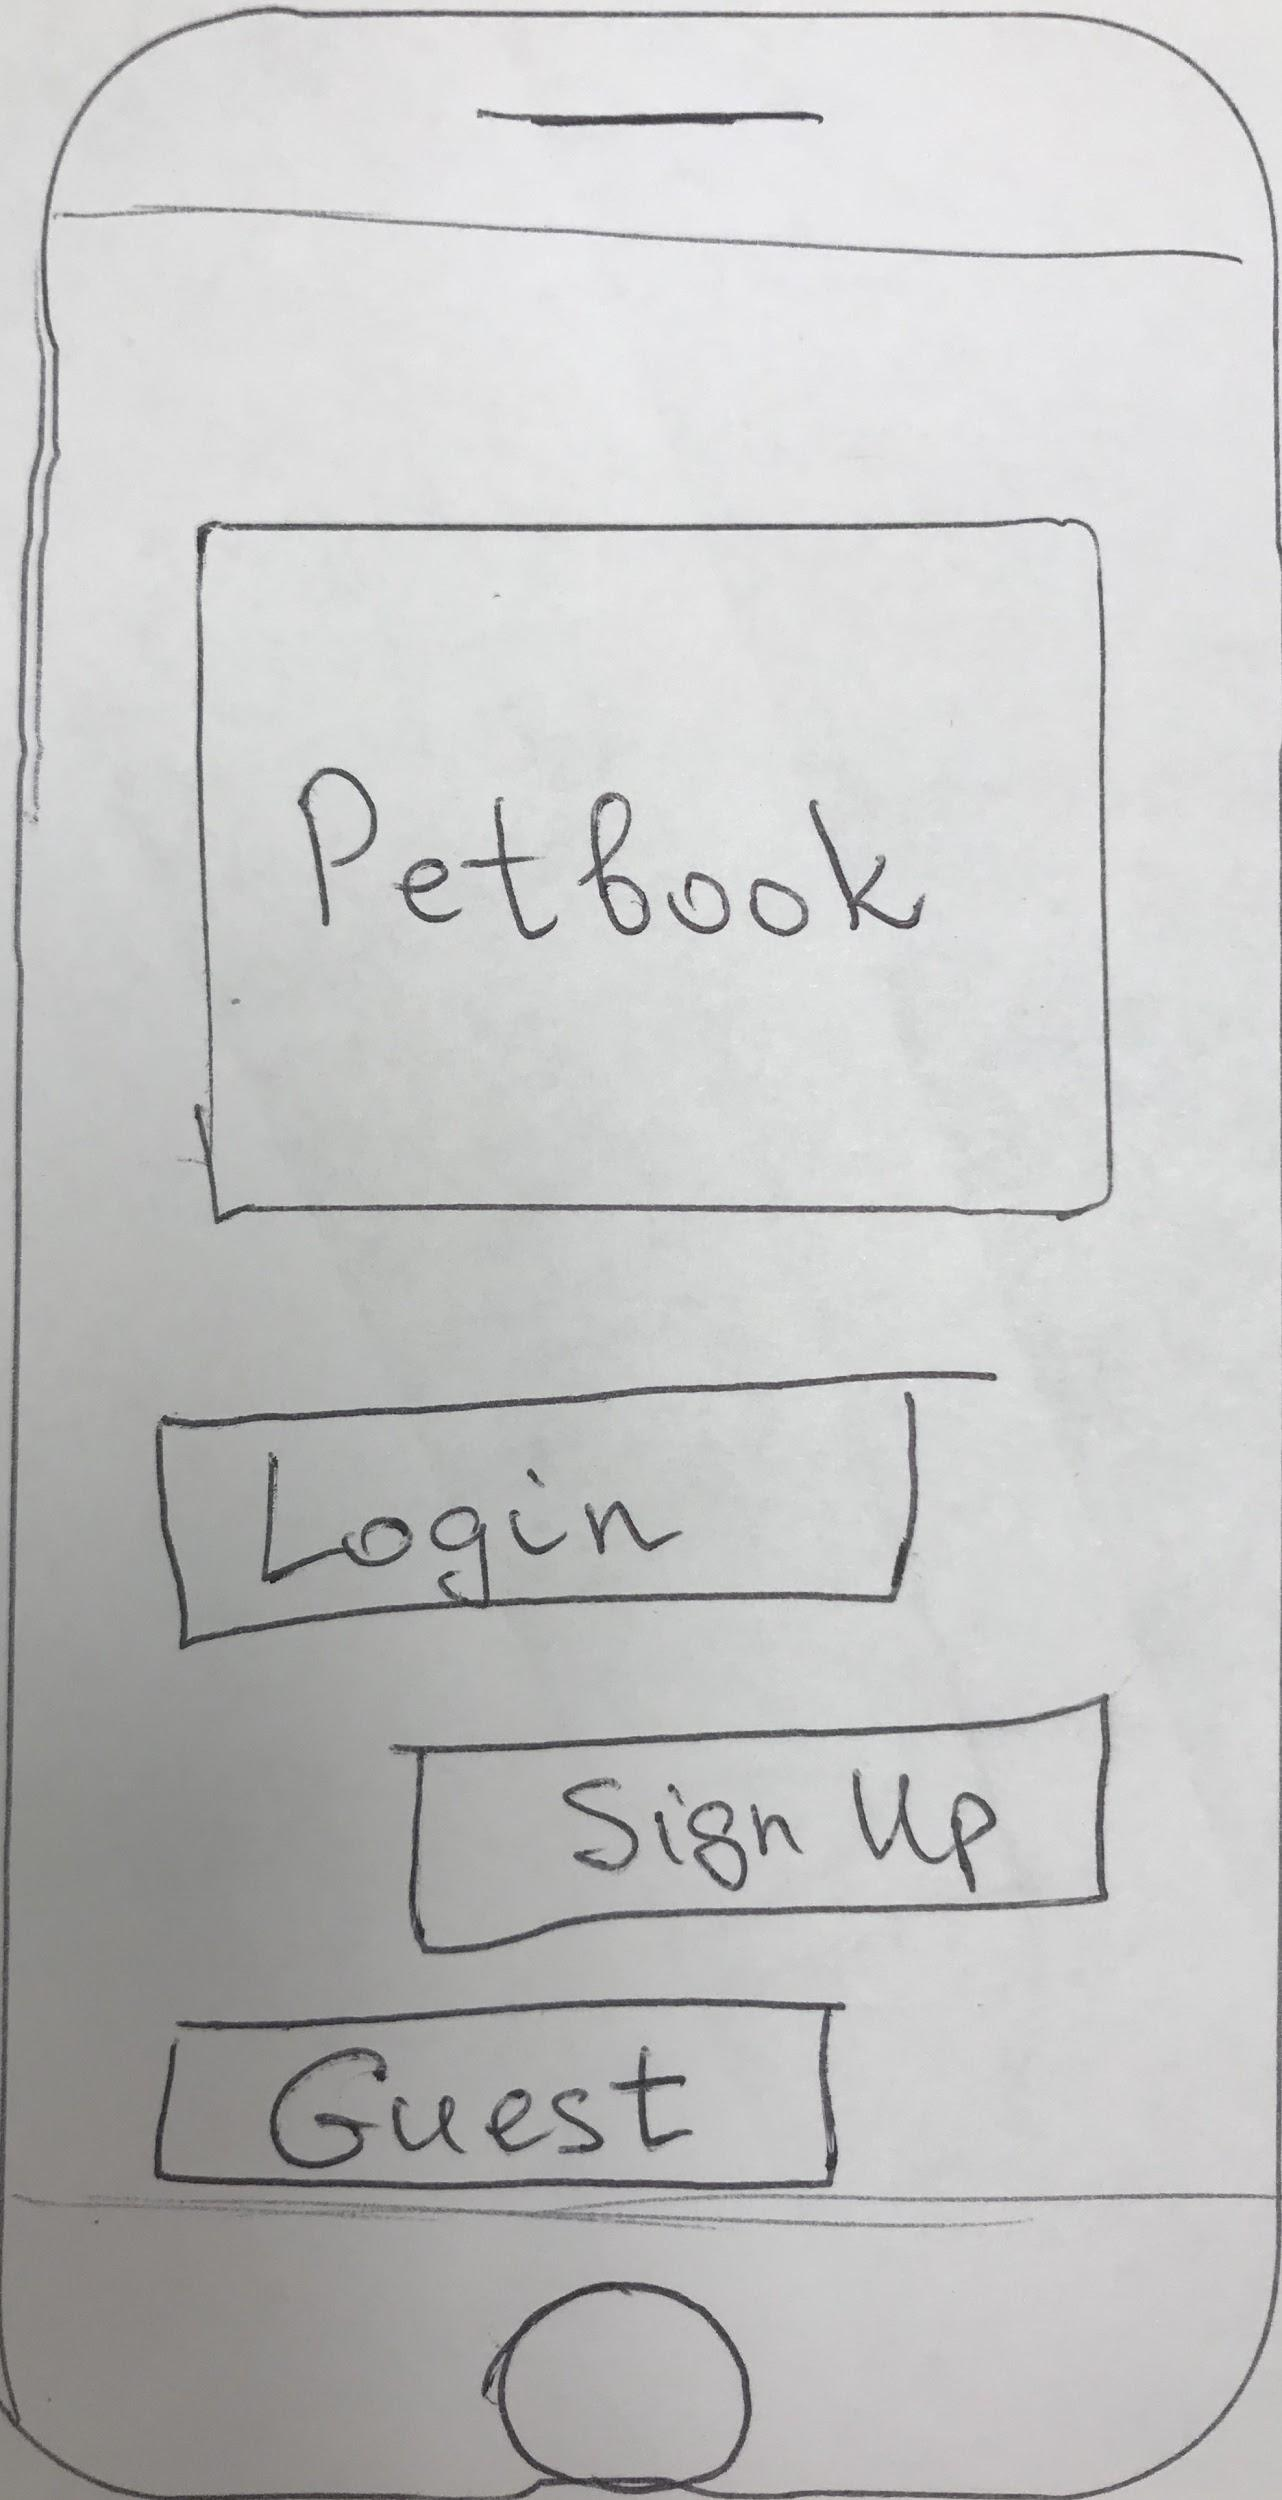 Petbook
Login
Sign Up
Guest